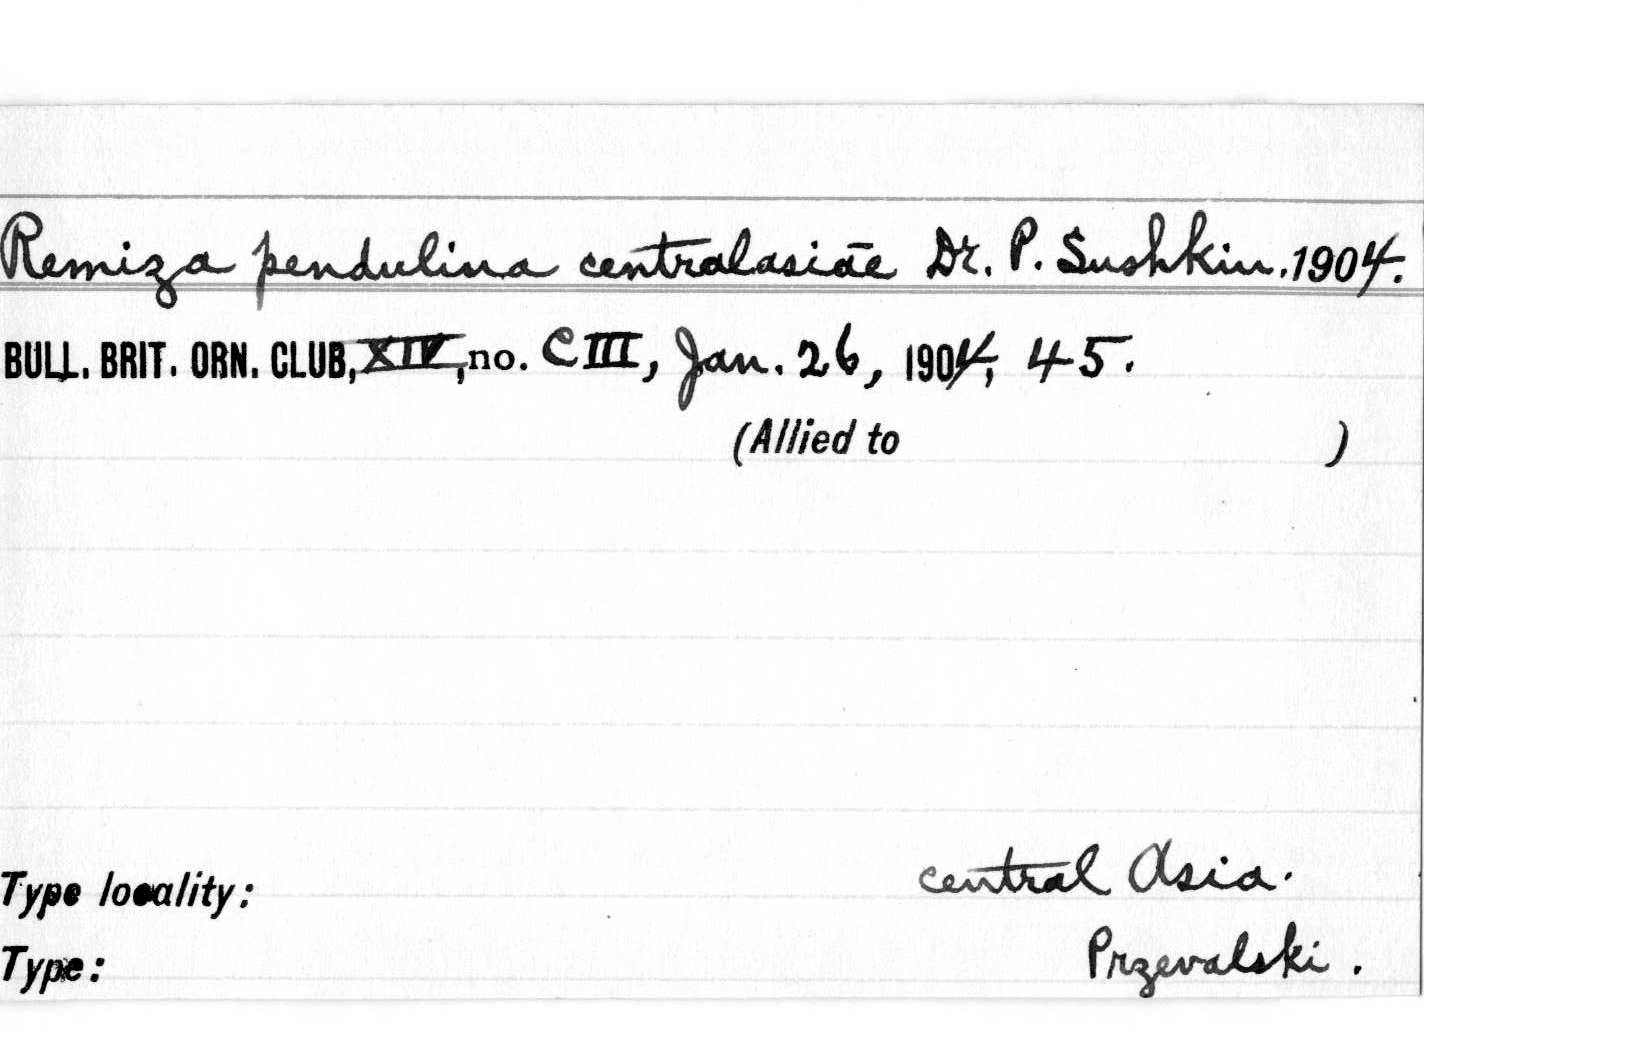 Remiza pendulina centralasiāe Dr. P. Sushkin. 1904.
BULL. BRIT. ORN. CLUB, XIV, no. CIII, Jan. 26, 1904, 45.
(Allied to )
Type locality: central Asia.
Type: Przevalski.